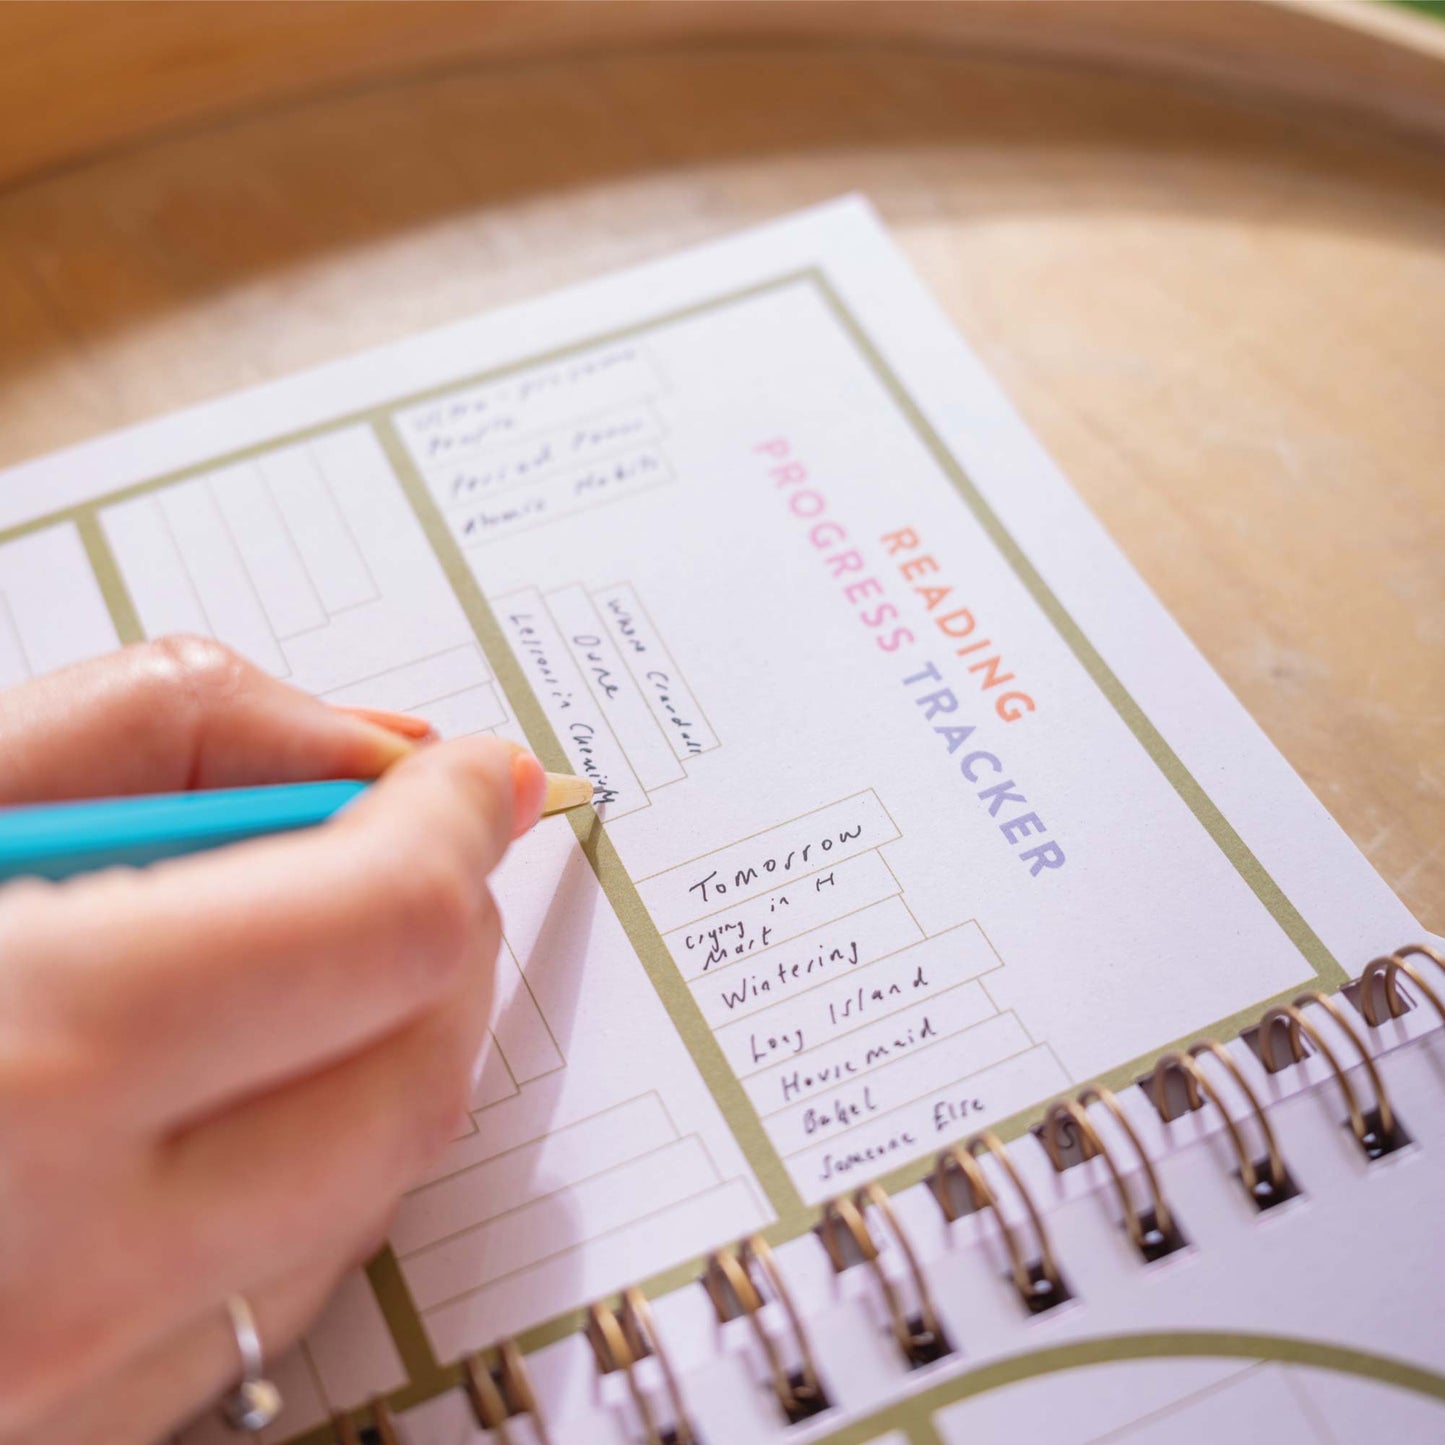 READING
PROGRESS TRACKER
Ultra-processed
People
Period Power
Atomic Habits
Lessons in Chemistry
Dune
Where Crawdads
Tomorrow
Crying in H
Mart
Wintering
Long Island
Housemaid
Babel
Someone Else